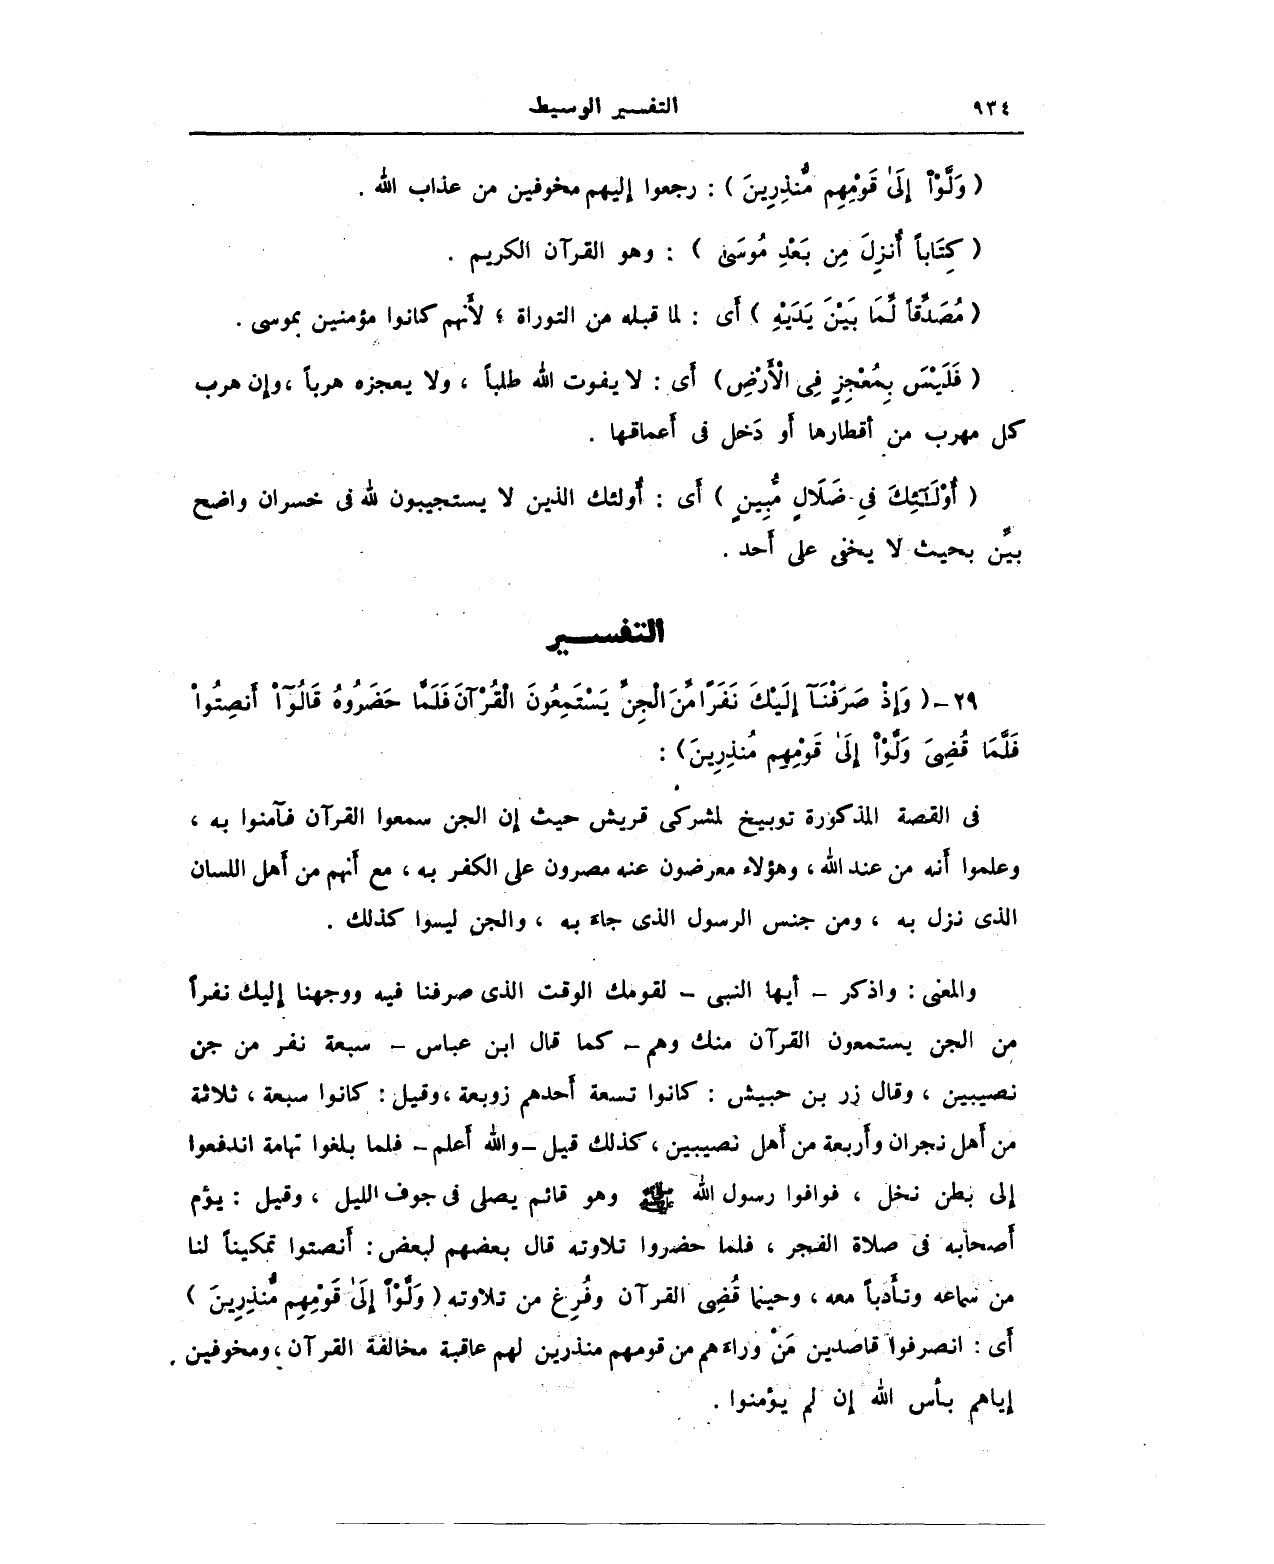 ٩٣٤
التفسير الوسيط
( وَلَّوْاْ إِلَىٰ قَوْمِهِم مُّنذِرِينَ ) : رجعوا إليهم مخوفين من عذاب الله .
( كِتَاباً أُنزِلَ مِن بَعْدِ مُوسَىٰ ) : وهو القرآن الكريم .
( مُصَدِّقاً لِّمَا بَيْنَ يَدَيْهِ ) أَى : لما قبله من التوراة ؛ لأَنهم كانوا مؤمنين بموسى .
( فَلَيْسَ بِمُعْجِزٍ فِى الْأَرْضِ) أَى : لا يفوت الله طلباً ، ولا يعجزه هرباً ،وإن هرب
كل مهرب من أقطارها أَو دَخل فى أَعماقها .
( أُوْلَـٰٓئِكَ فِى ضَلَالٍ مُّبِينٍ ) أَى : أُولئك الذين لا يستجيبون لله فى خسران واضح
بيِّن بحيث لا يخفى على أَحد .
التفســـير
٢٩ -( وَإِذْ صَرَفْنَآ إِلَيْكَ نَفَرًا مِّنَ الْجِنِّ يَسْتَمِعُونَ الْقُرْآنَ فَلَمَّا حَضَرُوهُ قَالُوٓاْ أَنصِتُواْ
فَلَمَّا قُضِىَ وَلَّوْاْ إِلَىٰ قَوْمِهِم مُنذِرِينَ) :
فى القصة المذكورة توبيخ لمشركى قريش حيث إن الجن سمعوا القرآن فآمنوا به ،
وعلموا أَنه من عند الله ، وهؤلاء معرضون عنه مصرون على الكفر به ، مع أَنهم من أَهل اللسان
الذى نزل به ، ومن جنس الرسول الذى جاءَ به ، والجن ليسوا كذلك .
والمعنى : واذكر – أَيها النبى – لقومك الوقت الذى صرفنا فيه ووجهنا إليك نفراً
من الجن يستمعون القرآن منك وهم – كما قال ابن عباس – سبعة نفر من جن
نصيبين ، وقال زر بن حبيش : كانوا تسعة أَحدهم زوبعة ،وقيل : كانوا سبعة ، ثلاثة
من أَهل نجران وأَربعة من أَهل نصيبين ، كذلك قيل –والله أَعلم – فلما بلغوا تهامة اندفعوا
إلى بطن نخل ، فوافوا رسول الله ﷺ وهو قائم يصلى فى جوف الليل ، وقيل : يؤم
أَصحابه فى صلاة الفجر ، فلما حضروا تلاوته قال بعضهم لبعض : أَنصتوا تمكيناً لنا
من سماعه وتأَدباً معه ، وحينما قُضِى القرآن وفُرِغ من تلاوته ( وَلَّوْاْ إِلَىٰ قَوْمِهِم مُّنذِرِينَ )
أَى : انصرفوا قاصدين مَنْ وراءَهم من قومهم منذرين لهم عاقبة مخالفة القرآن ،ومخوفين
إياهم بأْس الله إن لم يؤمنوا .